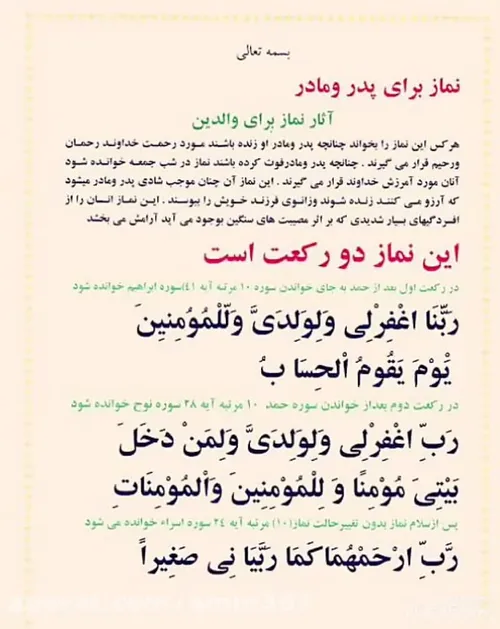 بسمه تعالی
نماز برای پدر ومادر
آثار نماز برای والدین
هرکس این نماز را بخواند چنانچه پدر ومادر او زنده باشند مورد رحمت خداوند رحمان
ورحیم قرار می گیرند . چنانچه پدر ومادرفوت کرده باشند نماز در شب جمعه خوانده شود
آنان مورد آمرزش خداوند قرار می گیرند . این نماز آن چنان موجب شادی پدر ومادر میشود
که آرزو می کنند زنده شوند وزانوی فرزند خویش را ببوسند . این نماز انسان را از
افسردگیهای بسیار شدیدی که بر اثر مصیبت های سنگین بوجود می آید آرامش می بخشد
این نماز دو رکعت است
در رکعت اول بعد از حمد به جای خواندن سوره ۱۰ مرتبه آیه ۴۱)سوره ابراهیم خوانده شود
رَبَّنَا اغْفِرْلِی وَلِوَلِدَیَّ وَلِّلْمُوُمِنِینَ
یَّوْمَ یَقُومُ اْلحِسَا بُ
در رکعت دوم بعداز خواندن سوره حمد ۱۰ مرتبه آیه ۲۸ سوره نوح خوانده شود
رَبِّ اغْفِرْلِی وَلِوَلِدَیَّ وَلِمَنْ دَخَلَ
بَیْتِیَ مُوْمِنًا وَ لِلْمُوْمِنِینَ وَاْلمُوْمِنَاتِ
پس ازسلام نماز بدون تغییرحالت نماز(۱۰) مرتبه آیه ۲۴ سوره اسراء خوانده می شود
رَّبِّ ارْحَمْهُمَا کَمَا رَبَّیَا نِی صَغِیراً